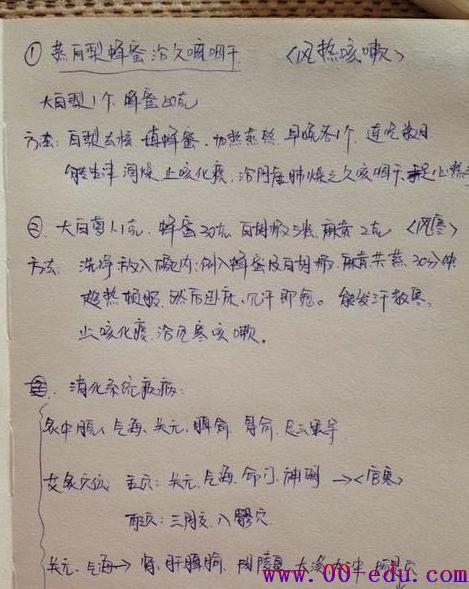 ① 蒸白梨蜂蜜治久咳咽干 〈风热咳嗽〉
大白梨1个 蜂蜜50克
方法: 白梨去核 填蜂蜜. 加热蒸熟 早晚各1个, 连吃数日
能生津润燥 止咳化痰, 治阴虚肺燥之久咳咽干, 手足心热
②. 大白萝卜1克, 蜂蜜30克 白胡椒5粒 麻黄2克 〈风寒〉
方法: 洗净放入碗内: 倒入蜂蜜及白胡椒. 麻黄共蒸30分钟
趁热顿服 然后卧床, 见汗即愈。能发汗散寒,
止咳化痰. 治风寒咳嗽。
消化系统疾病:
灸中脘、气海、关元、脾俞 肾俞. 足三里等
艾灸穴位 主穴: 关元, 气海, 命门, 神阙 →〈宫寒〉
配穴: 三阴交, 八髎穴
关元. 气海→ 肾, 肝 脾俞 阴陵泉 太溪 太冲
www.00-edu.com